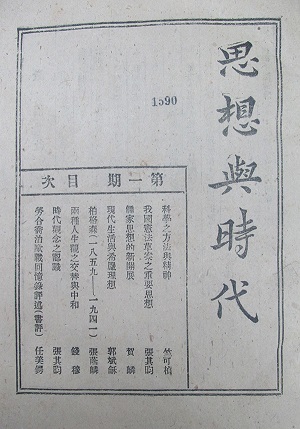 思想與時代
1590
第一期 目次
科學之方法與精神 竺可楨
我國憲法草案之重要思想 張其昀
儒家思想的新開展 賀麟
現代生活與希臘理想 郭斌龢
柏格森(一八五九—一九四一) 張蔭麟
兩種人生觀之交替與中和 錢穆
時代觀念之認識 張其昀
勞合喬治歐戰回憶錄評述(書評) 任美鍔